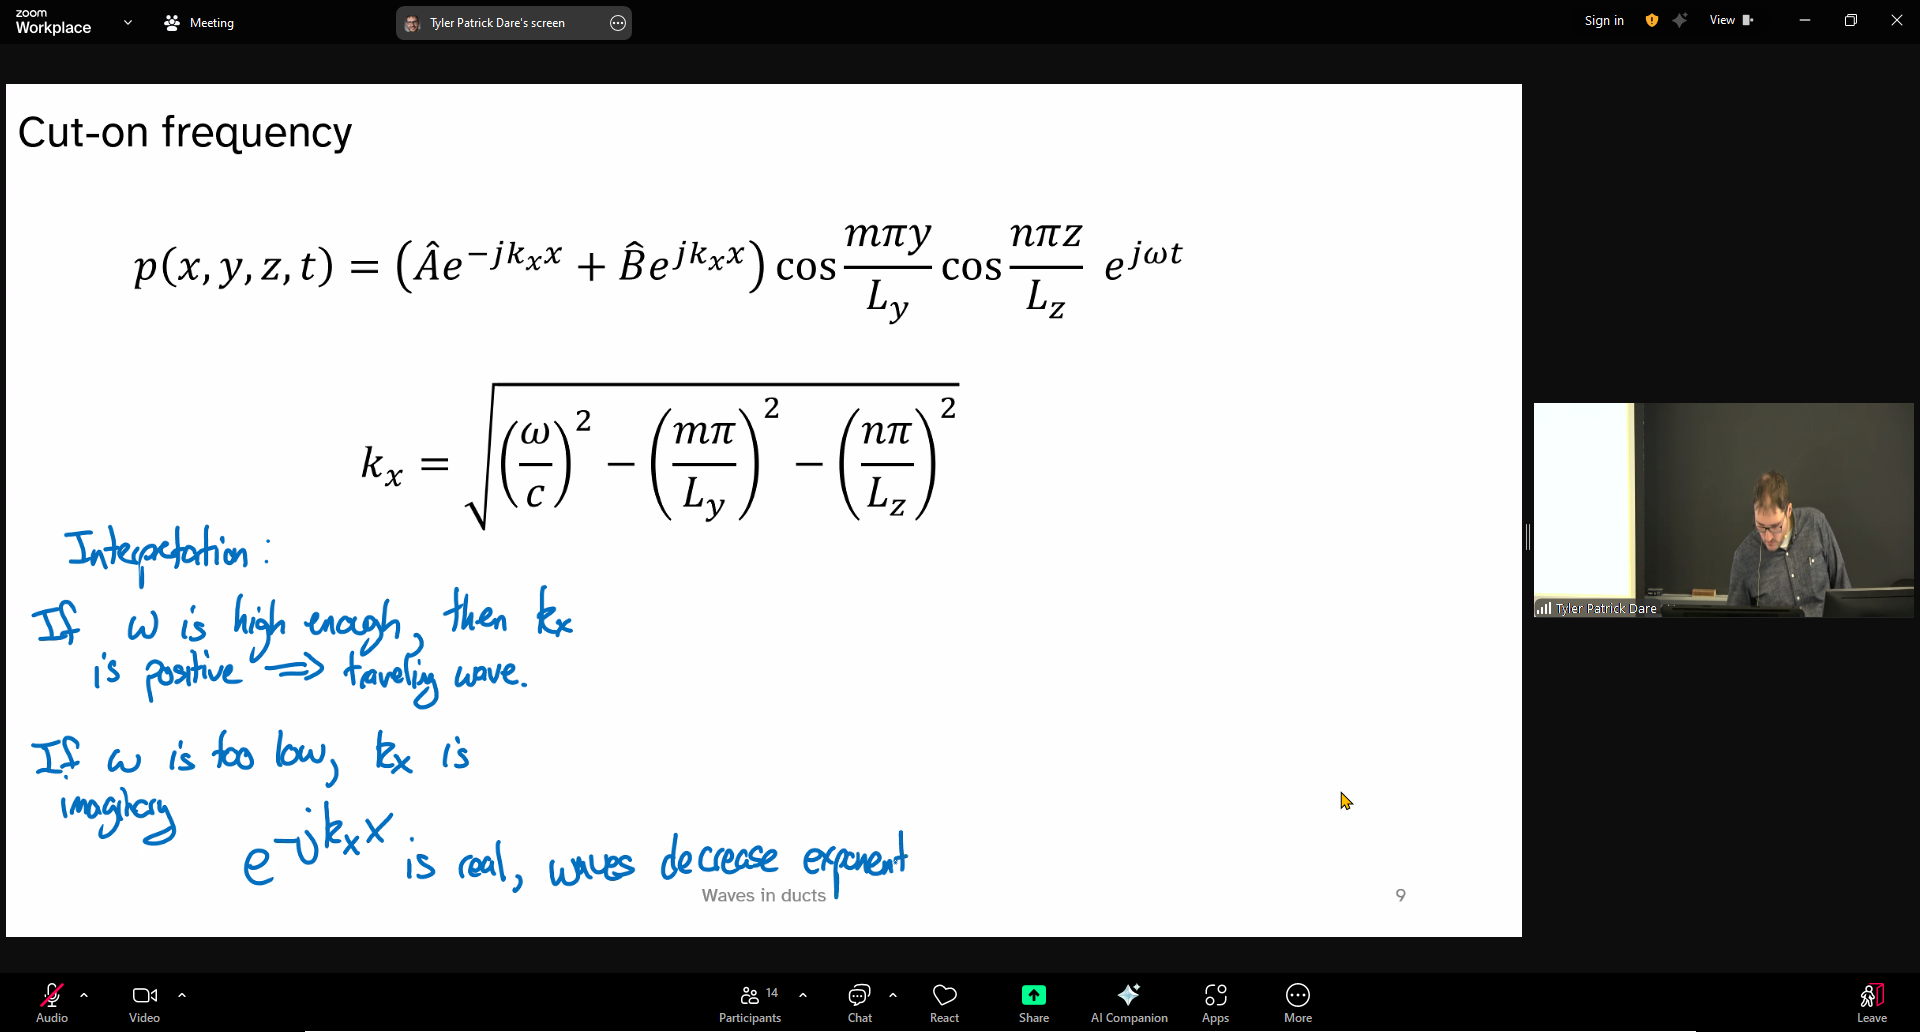 zoom
Workplace
Meeting
Tyler Patrick Dare's screen
Sign in
View
Cut-on frequency
p(x, y, z, t) = (Âe^{-jk_x x} + B̂e^{jk_x x}) cos \frac{mπy}{L_y} cos \frac{nπz}{L_z} e^{jωt}
k_x = \sqrt{(\frac{ω}{c})^2 - (\frac{mπ}{L_y})^2 - (\frac{nπ}{L_z})^2}
Interpretation:
If ω is high enough, then k_x
is positive ⟹ traveling wave.
If ω is too low, k_x is
imaginary
e^{-jk_x x} is real, waves decrease exponent
Waves in ducts
9
Tyler Patrick Dare
Audio
Video
14
Participants
Chat
React
Share
AI Companion
Apps
More
Leave